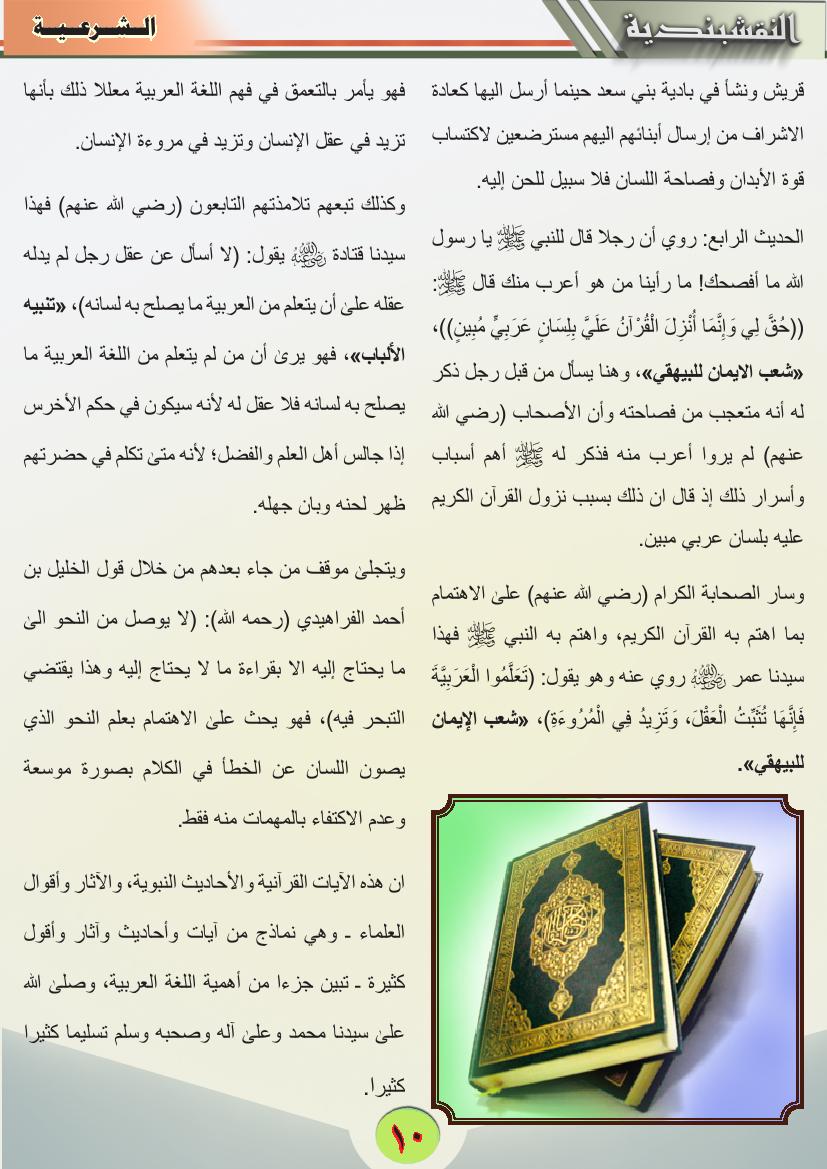 النقشبندية
الـشـرعـيـة
قريش ونشأ في بادية بني سعد حينما أرسل اليها كعادة
الاشراف من إرسال أبنائهم اليهم مسترضعين لاكتساب
قوة الأبدان وفصاحة اللسان فلا سبيل للحن إليه.
الحديث الرابع: روي أن رجلا قال للنبي ﷺ يا رسول
الله ما أفصحك! ما رأينا من هو أعرب منك قال ﷺ:
((حُقَّ لِي وَإِنَّمَا أُنْزِلَ الْقُرْآنُ عَلَيَّ بِلِسَانٍ عَرَبِيٍّ مُبِينٍ))،
«شعب الايمان للبيهقي»، وهنا يسأل من قبل رجل ذكر
له أنه متعجب من فصاحته وأن الأصحاب (رضي الله
عنهم) لم يروا أعرب منه فذكر له ﷺ أهم أسباب
وأسرار ذلك إذ قال ان ذلك بسبب نزول القرآن الكريم
عليه بلسان عربي مبين.
وسار الصحابة الكرام (رضي الله عنهم) علىٰ الاهتمام
بما اهتم به القرآن الكريم، واهتم به النبي ﷺ فهذا
سيدنا عمر رضي الله عنه روي عنه وهو يقول: (تَعَلَّمُوا الْعَرَبِيَّةَ
فَإِنَّهَا تُثَبِّتُ الْعَقْلَ، وَتَزِيدُ فِي الْمُرُوءَةِ)، «شعب الإيمان
للبيهقي».
فهو يأمر بالتعمق في فهم اللغة العربية معللا ذلك بأنها
تزيد في عقل الإنسان وتزيد في مروءة الإنسان.
وكذلك تبعهم تلامذتهم التابعون (رضي الله عنهم) فهذا
سيدنا قتادة رضي الله عنه يقول: (لا أسأل عن عقل رجل لم يدله
عقله علىٰ أن يتعلم من العربية ما يصلح به لسانه)، «تنبيه
الألباب»، فهو يرىٰ أن من لم يتعلم من اللغة العربية ما
يصلح به لسانه فلا عقل له لأنه سيكون في حكم الأخرس
إذا جالس أهل العلم والفضل؛ لأنه متىٰ تكلم في حضرتهم
ظهر لحنه وبان جهله.
ويتجلىٰ موقف من جاء بعدهم من خلال قول الخليل بن
أحمد الفراهيدي (رحمه الله): (لا يوصل من النحو الىٰ
ما يحتاج إليه الا بقراءة ما لا يحتاج إليه وهذا يقتضي
التبحر فيه)، فهو يحث علىٰ الاهتمام بعلم النحو الذي
يصون اللسان عن الخطأ في الكلام بصورة موسعة
وعدم الاكتفاء بالمهمات منه فقط.
ان هذه الآيات القرآنية والأحاديث النبوية، والآثار وأقوال
العلماء ـ وهي نماذج من آيات وأحاديث وآثار وأقول
كثيرة ـ تبين جزءا من أهمية اللغة العربية، وصلىٰ الله
علىٰ سيدنا محمد وعلىٰ آله وصحبه وسلم تسليما كثيرا
كثيرا.
١٠